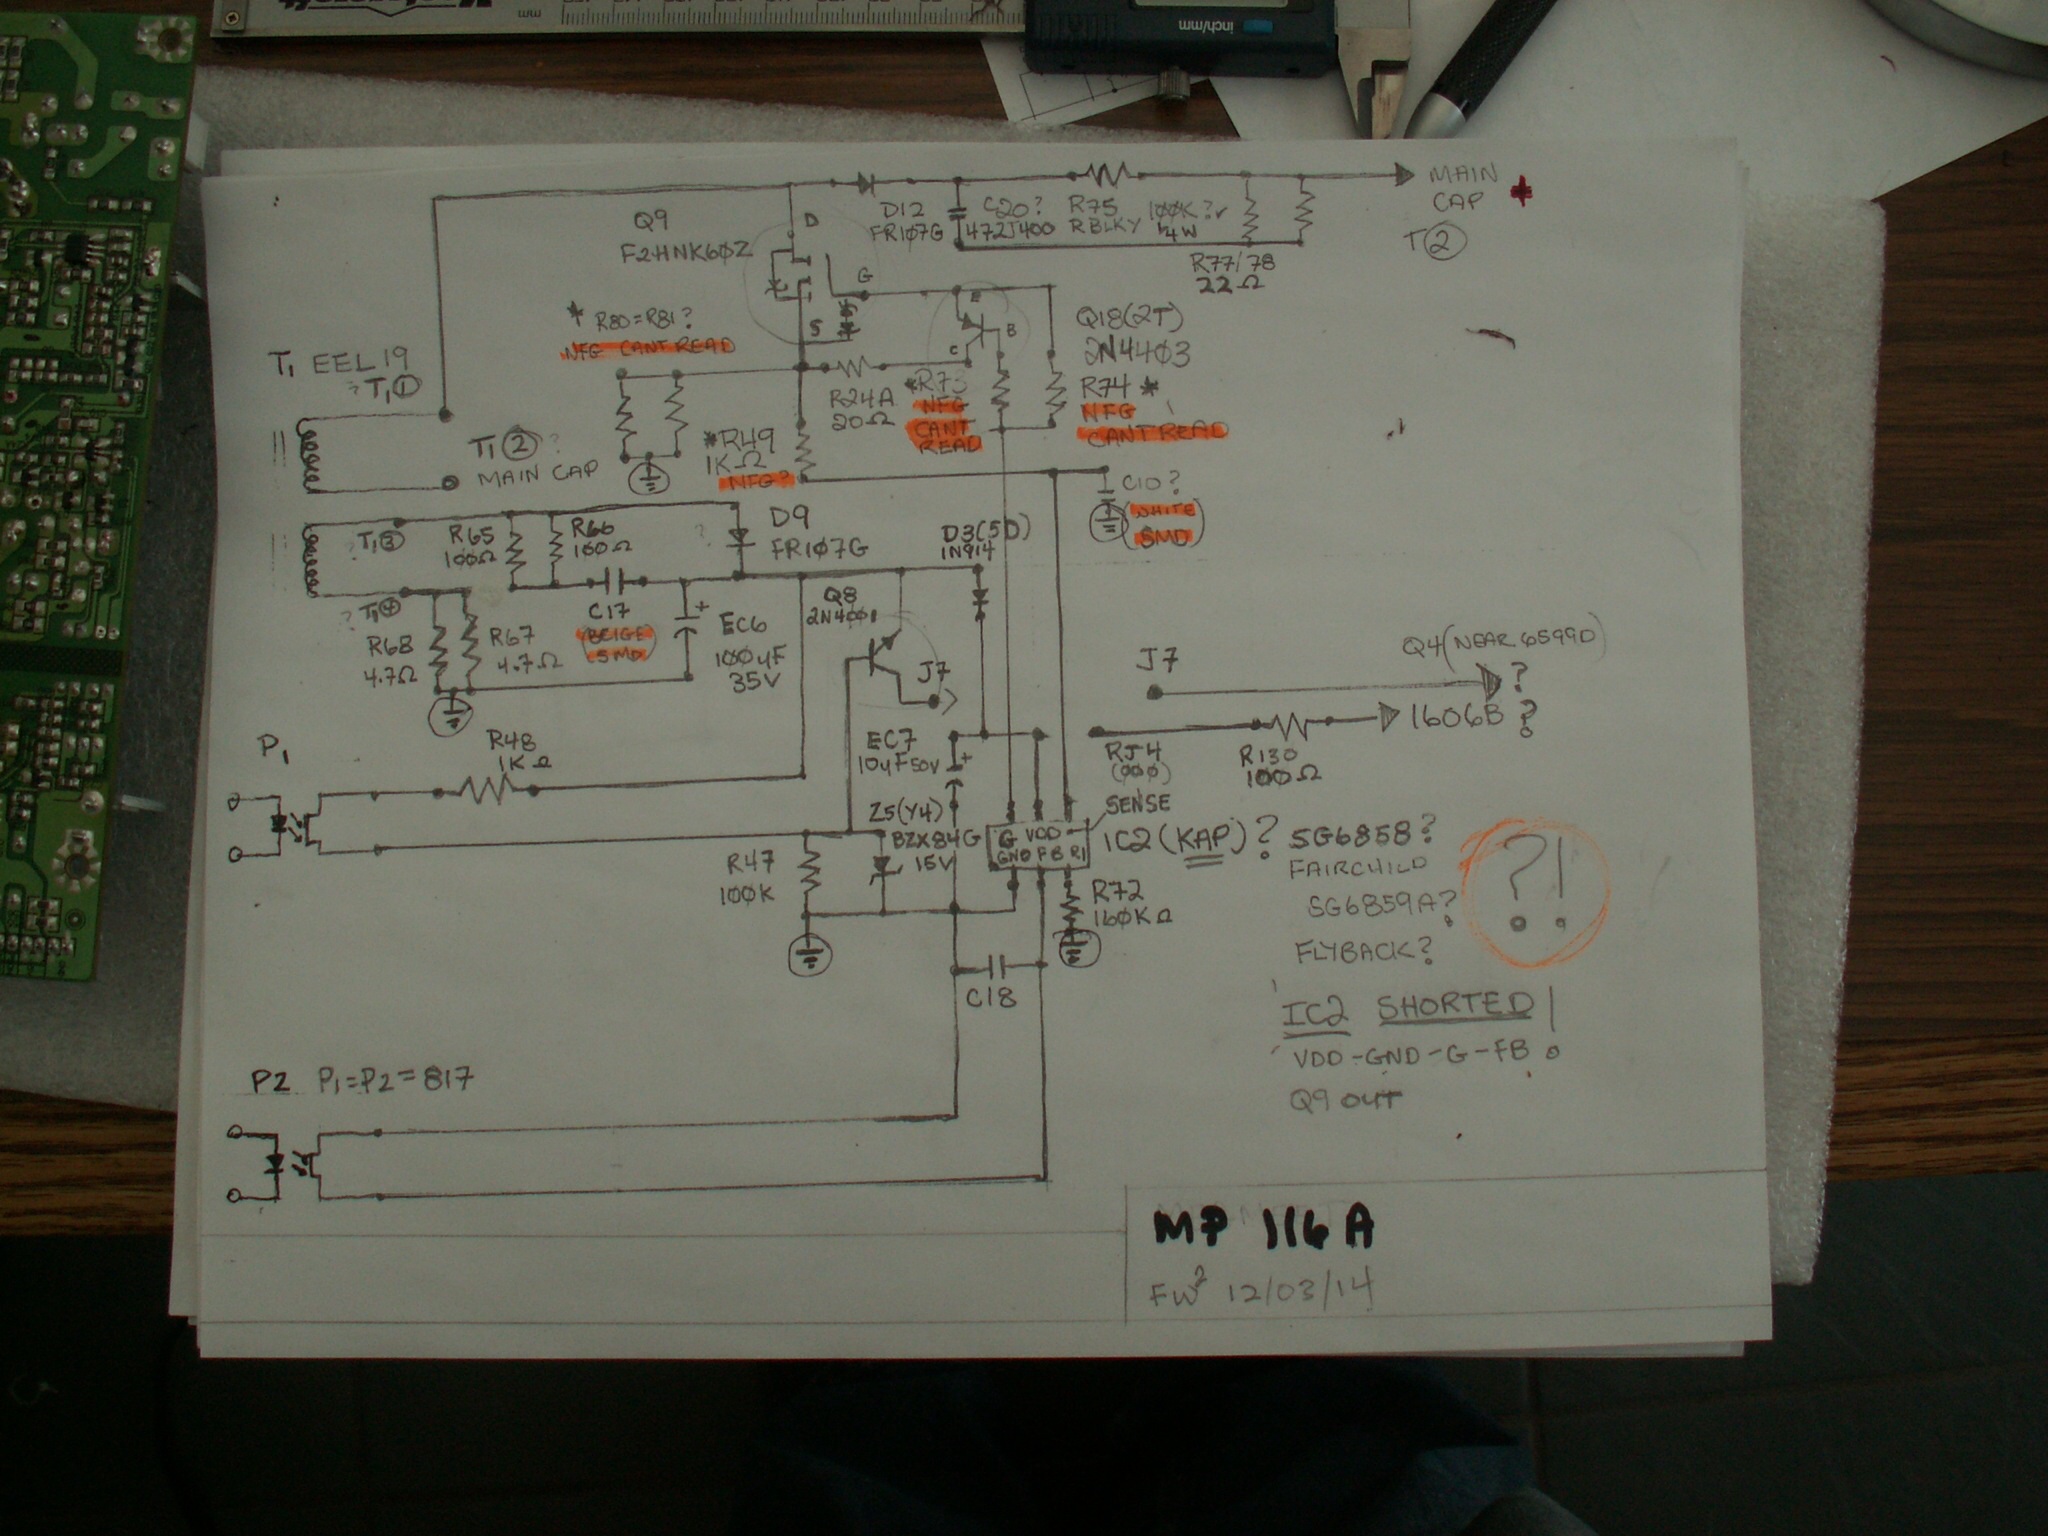 inch/mm
mm
Q9
F2HNK60Z
D
G
S
D12
FR107G
C20?
472J400
R75
RBLKY
100K?
1/4W
R77/78
22Ω
MAIN
CAP
T②
+
* R80=R81?
NFG CANT READ
E
B
C
Q18(2T)
2N4403
R74 *
NFG
CANT READ
T1 EEL19
? T1①
T1②?
MAIN CAP
R24A
20Ω
*R73
NFG
CANT
READ
*R49
1KΩ
NFG?
C10?
(WHITE
SMD)
T1③
?
R65
100Ω
R66
100Ω
?
D9
FR107G
D3(5D)
1N914
T1④
?
R68
4.7Ω
R67
4.7Ω
C17
(BEIGE
SMD)
+
EC6
100uF
35V
Q8
2N4001
J7
J7
Q4(NEAR 6599D)
?
1606B ?
RJ4
(000)
R130
100Ω
P1
R48
1KΩ
EC7
10uF50V
+
Z5(Y4)
BZX84G
15V
SENSE
G VDD
GND FB RI
IC2 (KAP)? SG6858?
FAIRCHILD
SG6859A?
FLYBACK?
?!
R47
100K
R72
160KΩ
C18
IC2 SHORTED!
VDD-GND-G-FB
Q9 OUT
P2 P1=P2=817
MP 116A
FW² 12/03/14